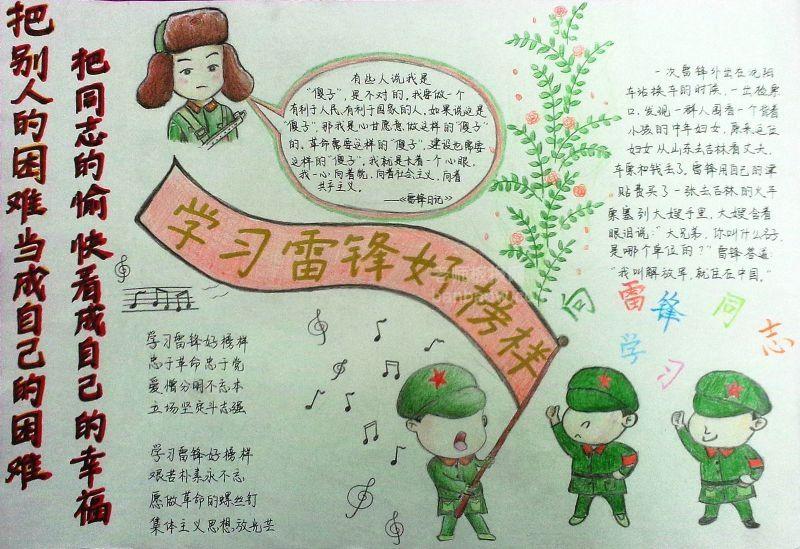 把别人的困难当成自己的困难
把同志的愉快看成自己的幸福
有些人说我是
“傻子”，是不对的，我要做一个
有利于人民，有利于国家的人，如果说这是
“傻子”，那我是心甘愿意做这样的“傻子”
的。革命需要这样的“傻子”，建设也需要
这样的“傻子”，我就是长着一个心眼，
我一心向着党，向着社会主义，向着
共产主义。
——《雷锋日记》
一次雷锋外出在沈阳
车站换车的时候，一出检票
口，发现一群人围看一个背着
小孩的中年妇女，原来这位
妇女从山东去吉林看丈夫，
车票和钱丢了。雷锋用自己的津
贴费买了一张去吉林的火车
票塞到大嫂手里，大嫂含着
眼泪说：“大兄弟，你叫什么名字，
是哪个单位的？”雷锋答道：
“我叫解放军，就住在中国。”
学习雷锋好榜样
向雷锋同志
学习
学习雷锋好榜样
忠于革命忠于党
爱憎分明不忘本
立场坚定斗志强
学习雷锋好榜样
艰苦朴素永不忘
愿做革命的螺丝钉
集体主义思想放光芒